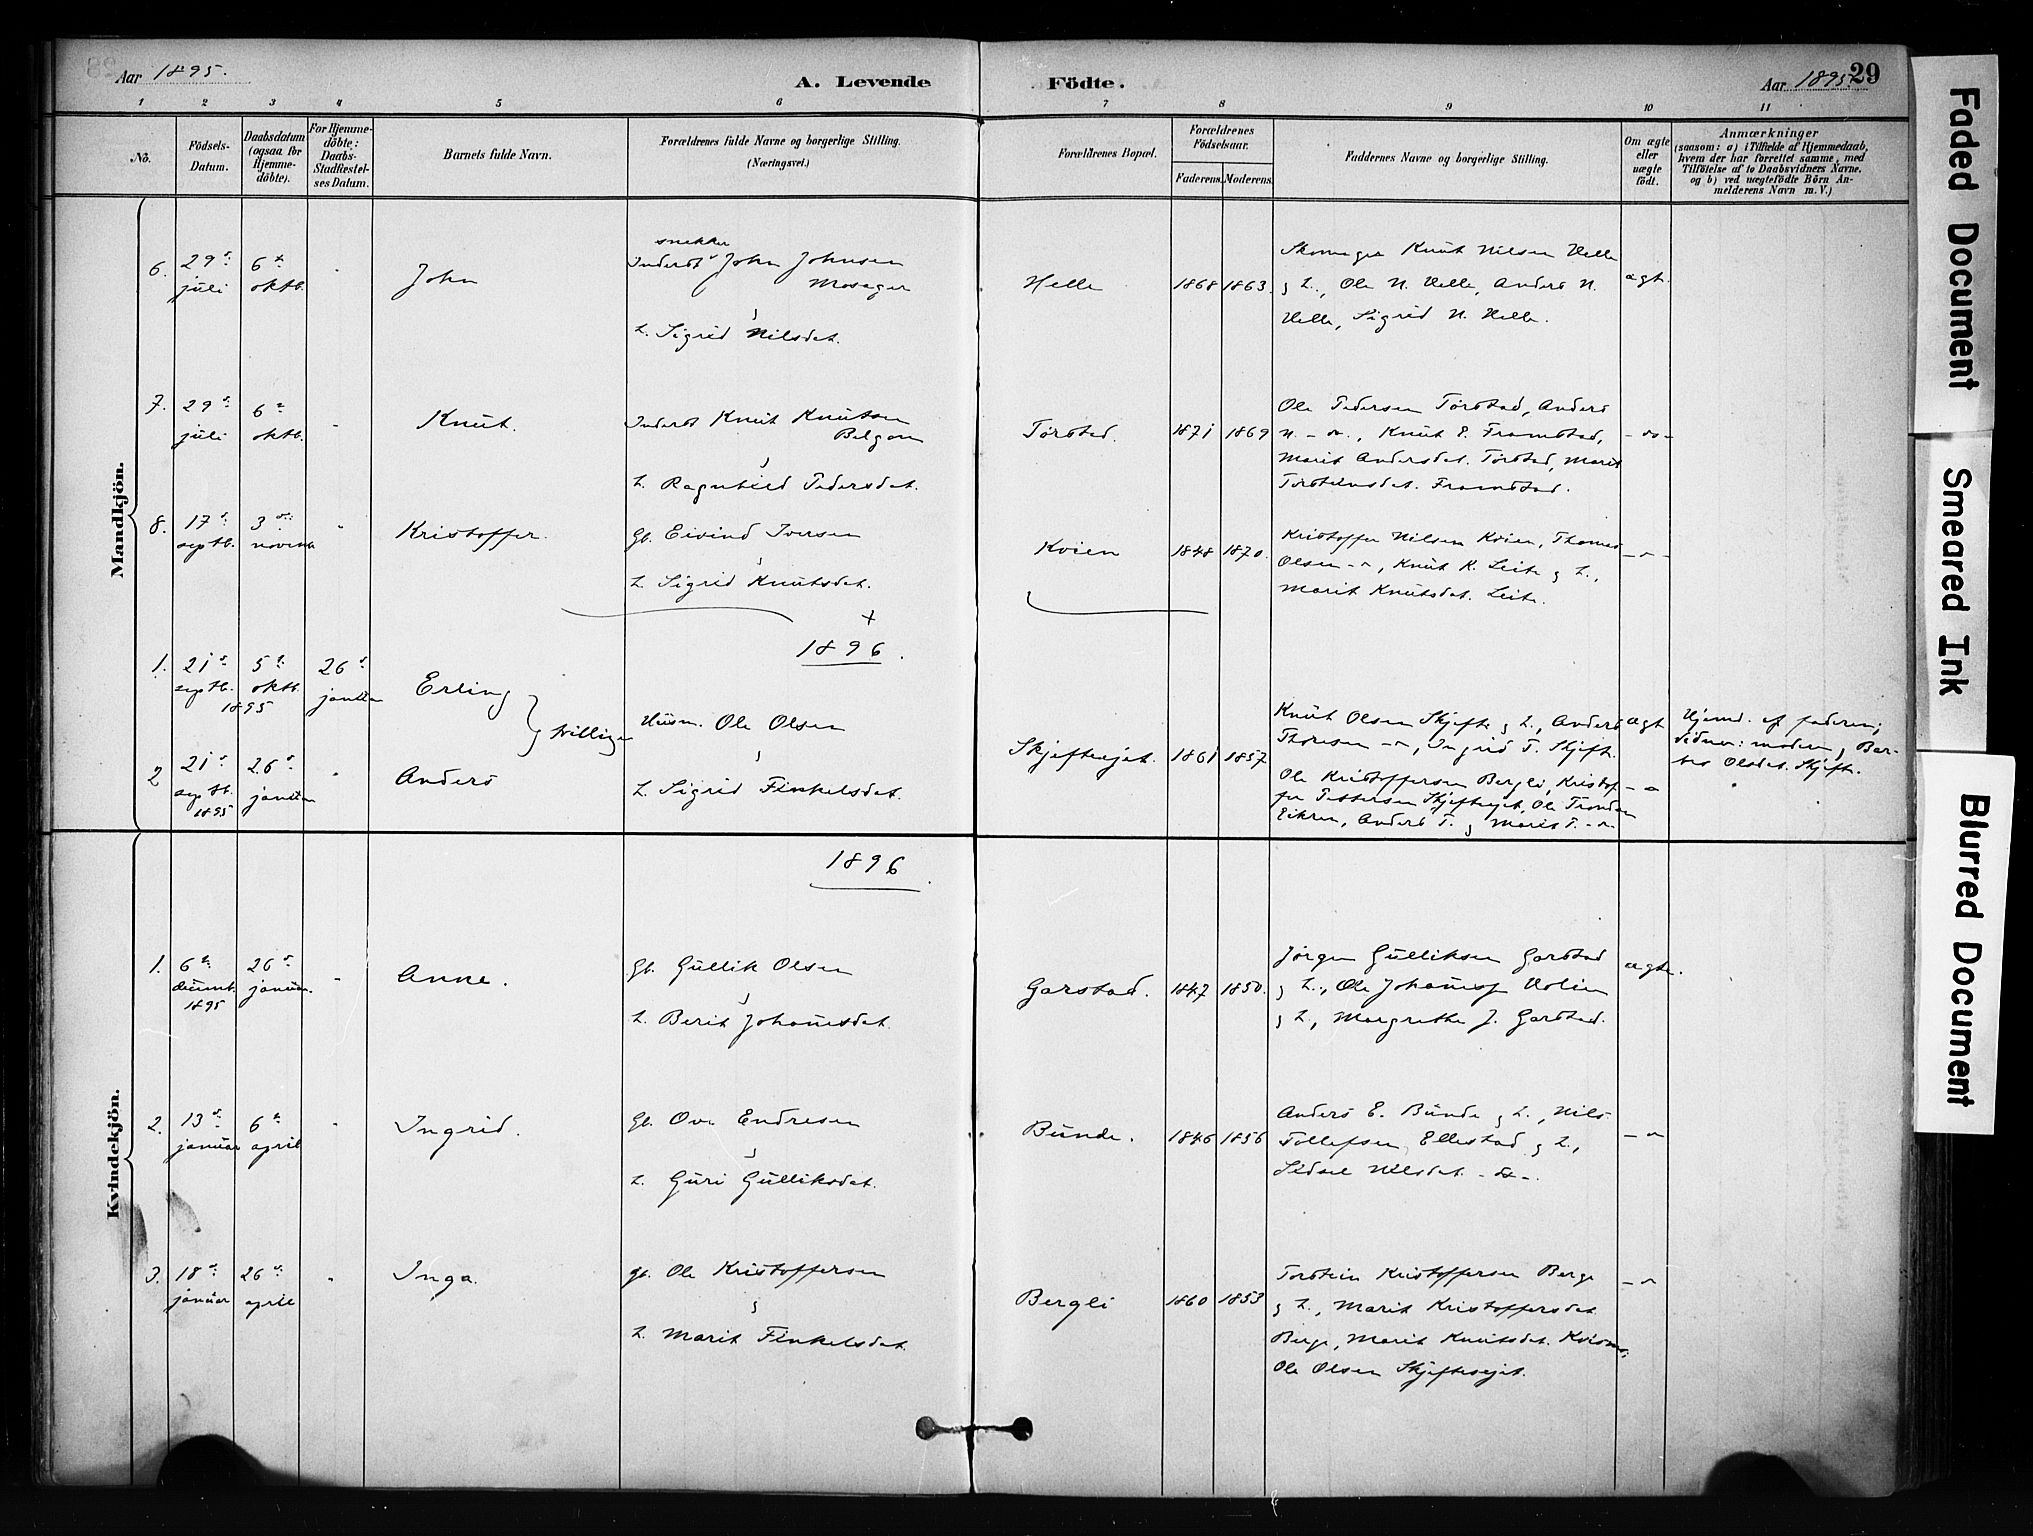 Aar 1895.
A. Levende Födte.
Aar 1895. 29
1 2 3 4 5 6 7 8 9 10 11
No.
Födsels-Datum.
Daabsdatum (ogsaa for Hjemme-döbte).
For Hjemme-döbte: Daabs-Stadfæstel-ses Datum.
Barnets fulde Navn.
Forældrenes fulde Navne og borgerlige Stilling. (Næringsvei.)
Forældrenes Bopæl.
Forældrenes Födselsaar.
Faderens. Moderens.
Faddernes Navne og borgerlige Stilling.
Om ægte eller uægte födt.
Anmærkninger
(saasom: a) i Tilfælde af Hjemmedaab,
hvem der har forrettet samme, med
Tilföielse af to Daabsvidners Navne.
og b) ved uægtefödte Börn An-
melderens Navn m. V.)
Mandkjön.
6. 29 juli
6 oktb.
John
snekker
Inderst John Johnsen
Mosager
h. Sigrid Nilsdat.
Helle
1868 1863.
Skomager Knut Nilsen Helle
og h., Ole N. Helle, Anders N.
Helle, Sigrid N. Helle.
ægt.
7. 29 juli
6 oktb.
Knut.
Inderst Knut Knutsen
h. Ragnhild Pedersdat.
Tørstad.
1871 1869
Ole Pedersen Tørstad, Anders
N. - do., Knut E. Framstad,
Marit Andersdat. Tørstad, Marit
Torsteinsdat. Framstad.
- do -
8. 17 septb.
3 novemb
Kristoffer.
Gb. Eivind Iversen
h. Sigrid Knutsdat.
Kvien
1848 1870.
Kristoffer Nilsen Kvien, Thomas
Olsen - " , Knut K. Leite og h.,
Marit Knutsdat. Leite.
- " -
1896.
1. 21 septb. 1895
5 oktb.
26 januar
Erling
tvillinger
2 21 septb. 1895
26 januar
Anders
Husm. Ole Olsen
h. Sigrid Finkelsdat.
Skjefteejet.
1861 1857
Knut Olsen Skjefte og h., Anders
Thoresen - " , Ingrid T. Skjefte.
Ole Kristoffersen Bergli, Kristof-
fer Pettersen Skjefteejet, Ole Tronden
Eikren, Anders T. og Marit T. - "
ægt
- "
Hjemd. af faderen;
Vidner: moderen og Ber-
Olsdat. Skjefte.
Kvindekjön.
1896.
1. 6 decemb. 1895
26 januar.
Anne.
Gb. Gullik Olsen
h. Berit Johannesdat.
Garstad.
1847 1850.
Jørgen Gulliksen Garstad
og h., Ole Johannesen Volin
og h., Margrethe J. Garstad.
ægte.
2. 13 januar
6 april
Ingrid.
Gb. Ove Endresen
h. Guri Gulliksdat.
Bunde.
1846 1856
Anders E. Bunde og h., Nils
Tollefsen Ellestad og h.,
Sidsel Nilsdat. - do -.
- "
3. 18 januar
26 april
Inga.
gb. Ole Kristoffersen
h. Marit Finkelsdat.
Bergli
1860 1853
Torstein Kristoffersen Berge
og h., Marit Kristoffersdat.
Berge, Marit Knutsdat.
Ole Olsen Skjefteejet.
- "
Faded Document
Smeared Ink
Blurred Document